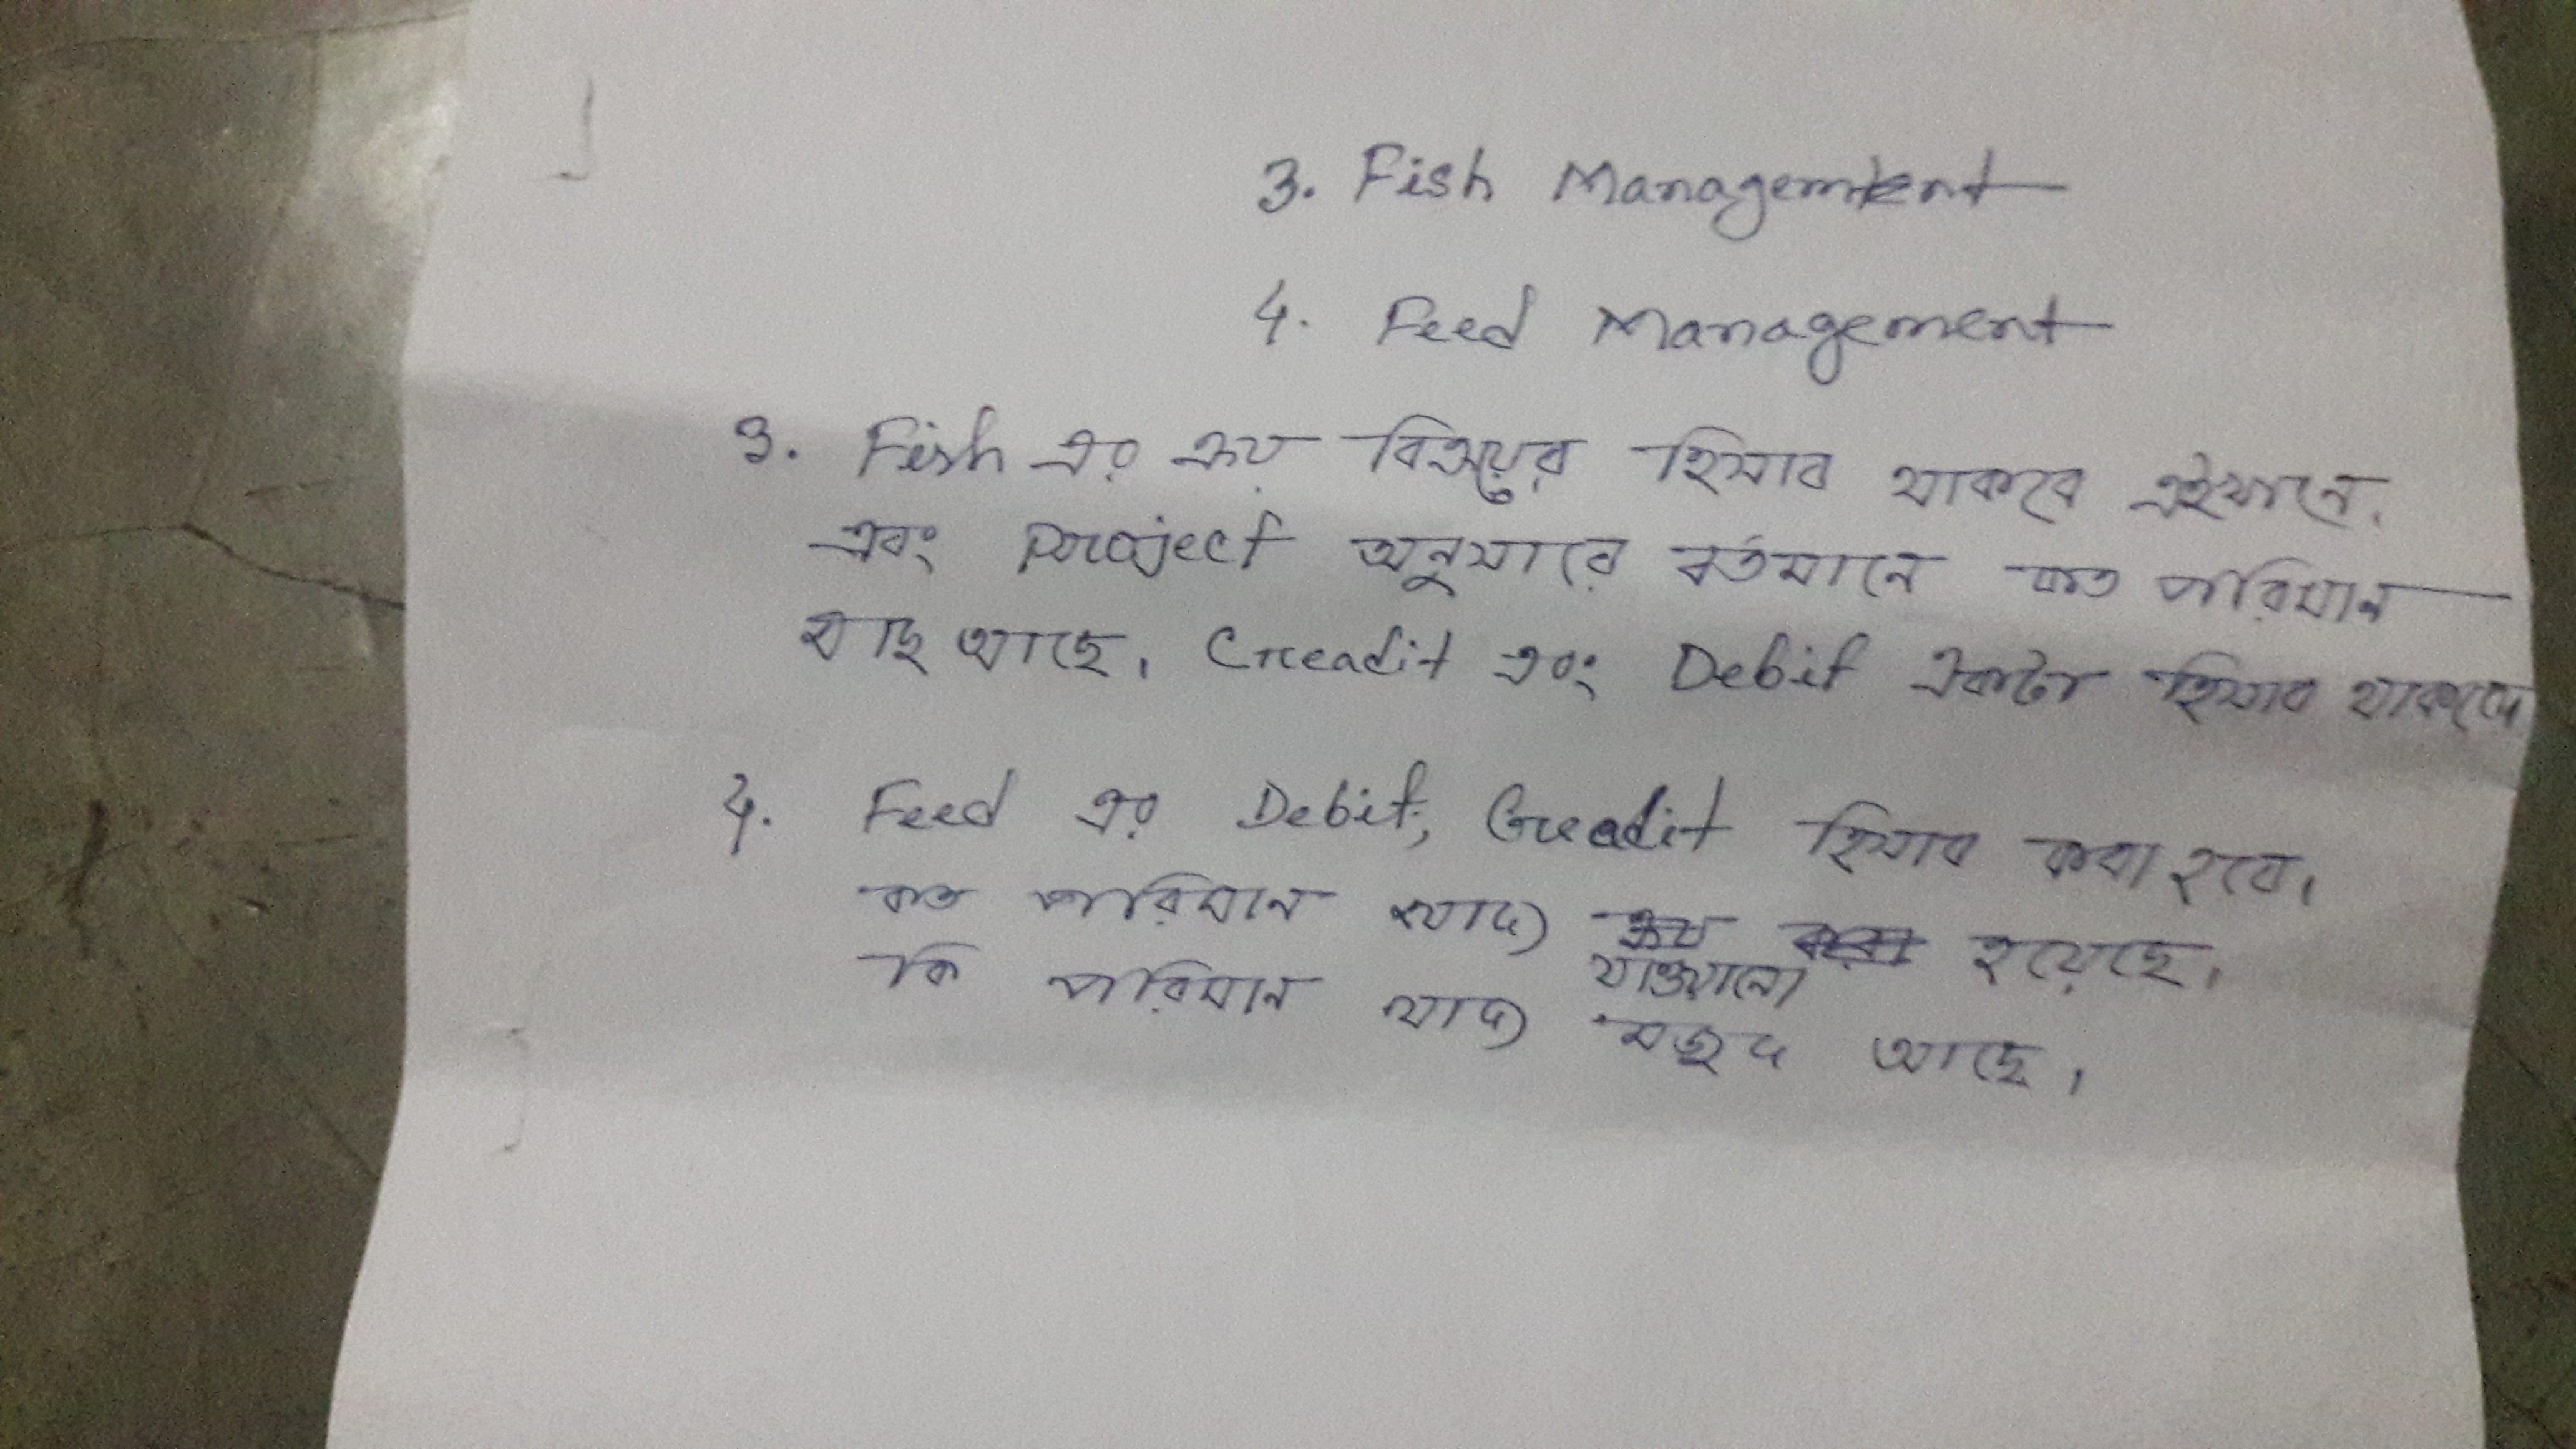 3. Fish Management
4. Feed Management
3. Fish এর ক্রয় বিক্রয়ের হিসাব থাকবে এইখানে.
এবং Project অনুসারে বর্তমানে কত পরিমান
মাছ আছে। Creadit এবং Debit একটা হিসাব থাকবে
4. Feed এর Debit, Creadit হিসাব করা হবে।
কত পরিমানে খাদ্য ক্রয় করা হয়েছে।
খাওয়ানো
কি পরিমান খাদ্য মজুদ আছে।